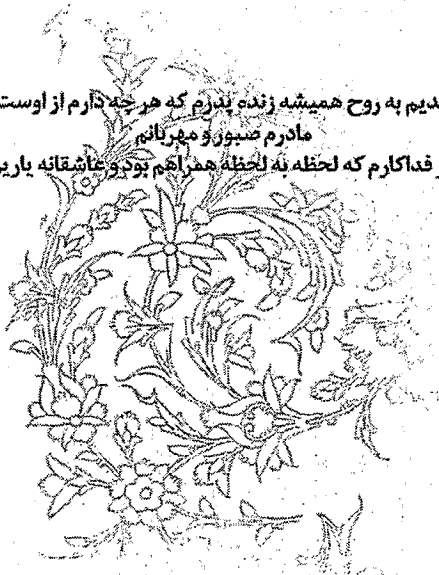 دیم به روح همیشه زنده پدرم که هر چه دارم از اوست
مادرم صبور و مهربانم
فداکارم که لحظه به لحظه همراهم بود و عاشقانه یاری